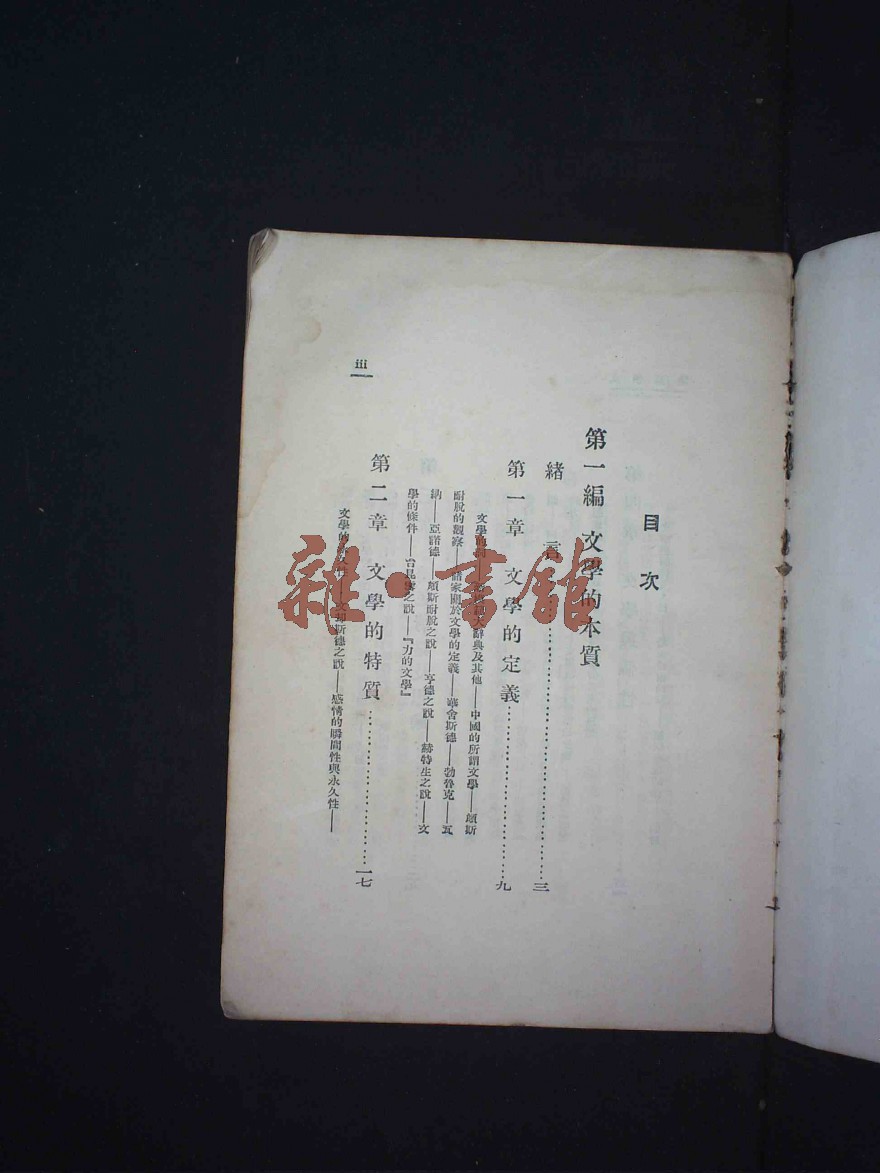 目次
第一編 文學的本質
緒言…………三
第一章 文學的定義…………九
大辭典及其他——中國的所謂文學——頗斯
耐脫的觀察——諸家關於文學的定義——華舍斯德——勃魯克——瓦
納——亞諾德——頗斯耐脫之說——亨德之說——赫特生之說——文
學的條件——之說——『力的文學』
第二章 文學的特質…………一七
文學的斯德之說——感情的瞬間性與永久性——
iii
雜·書館